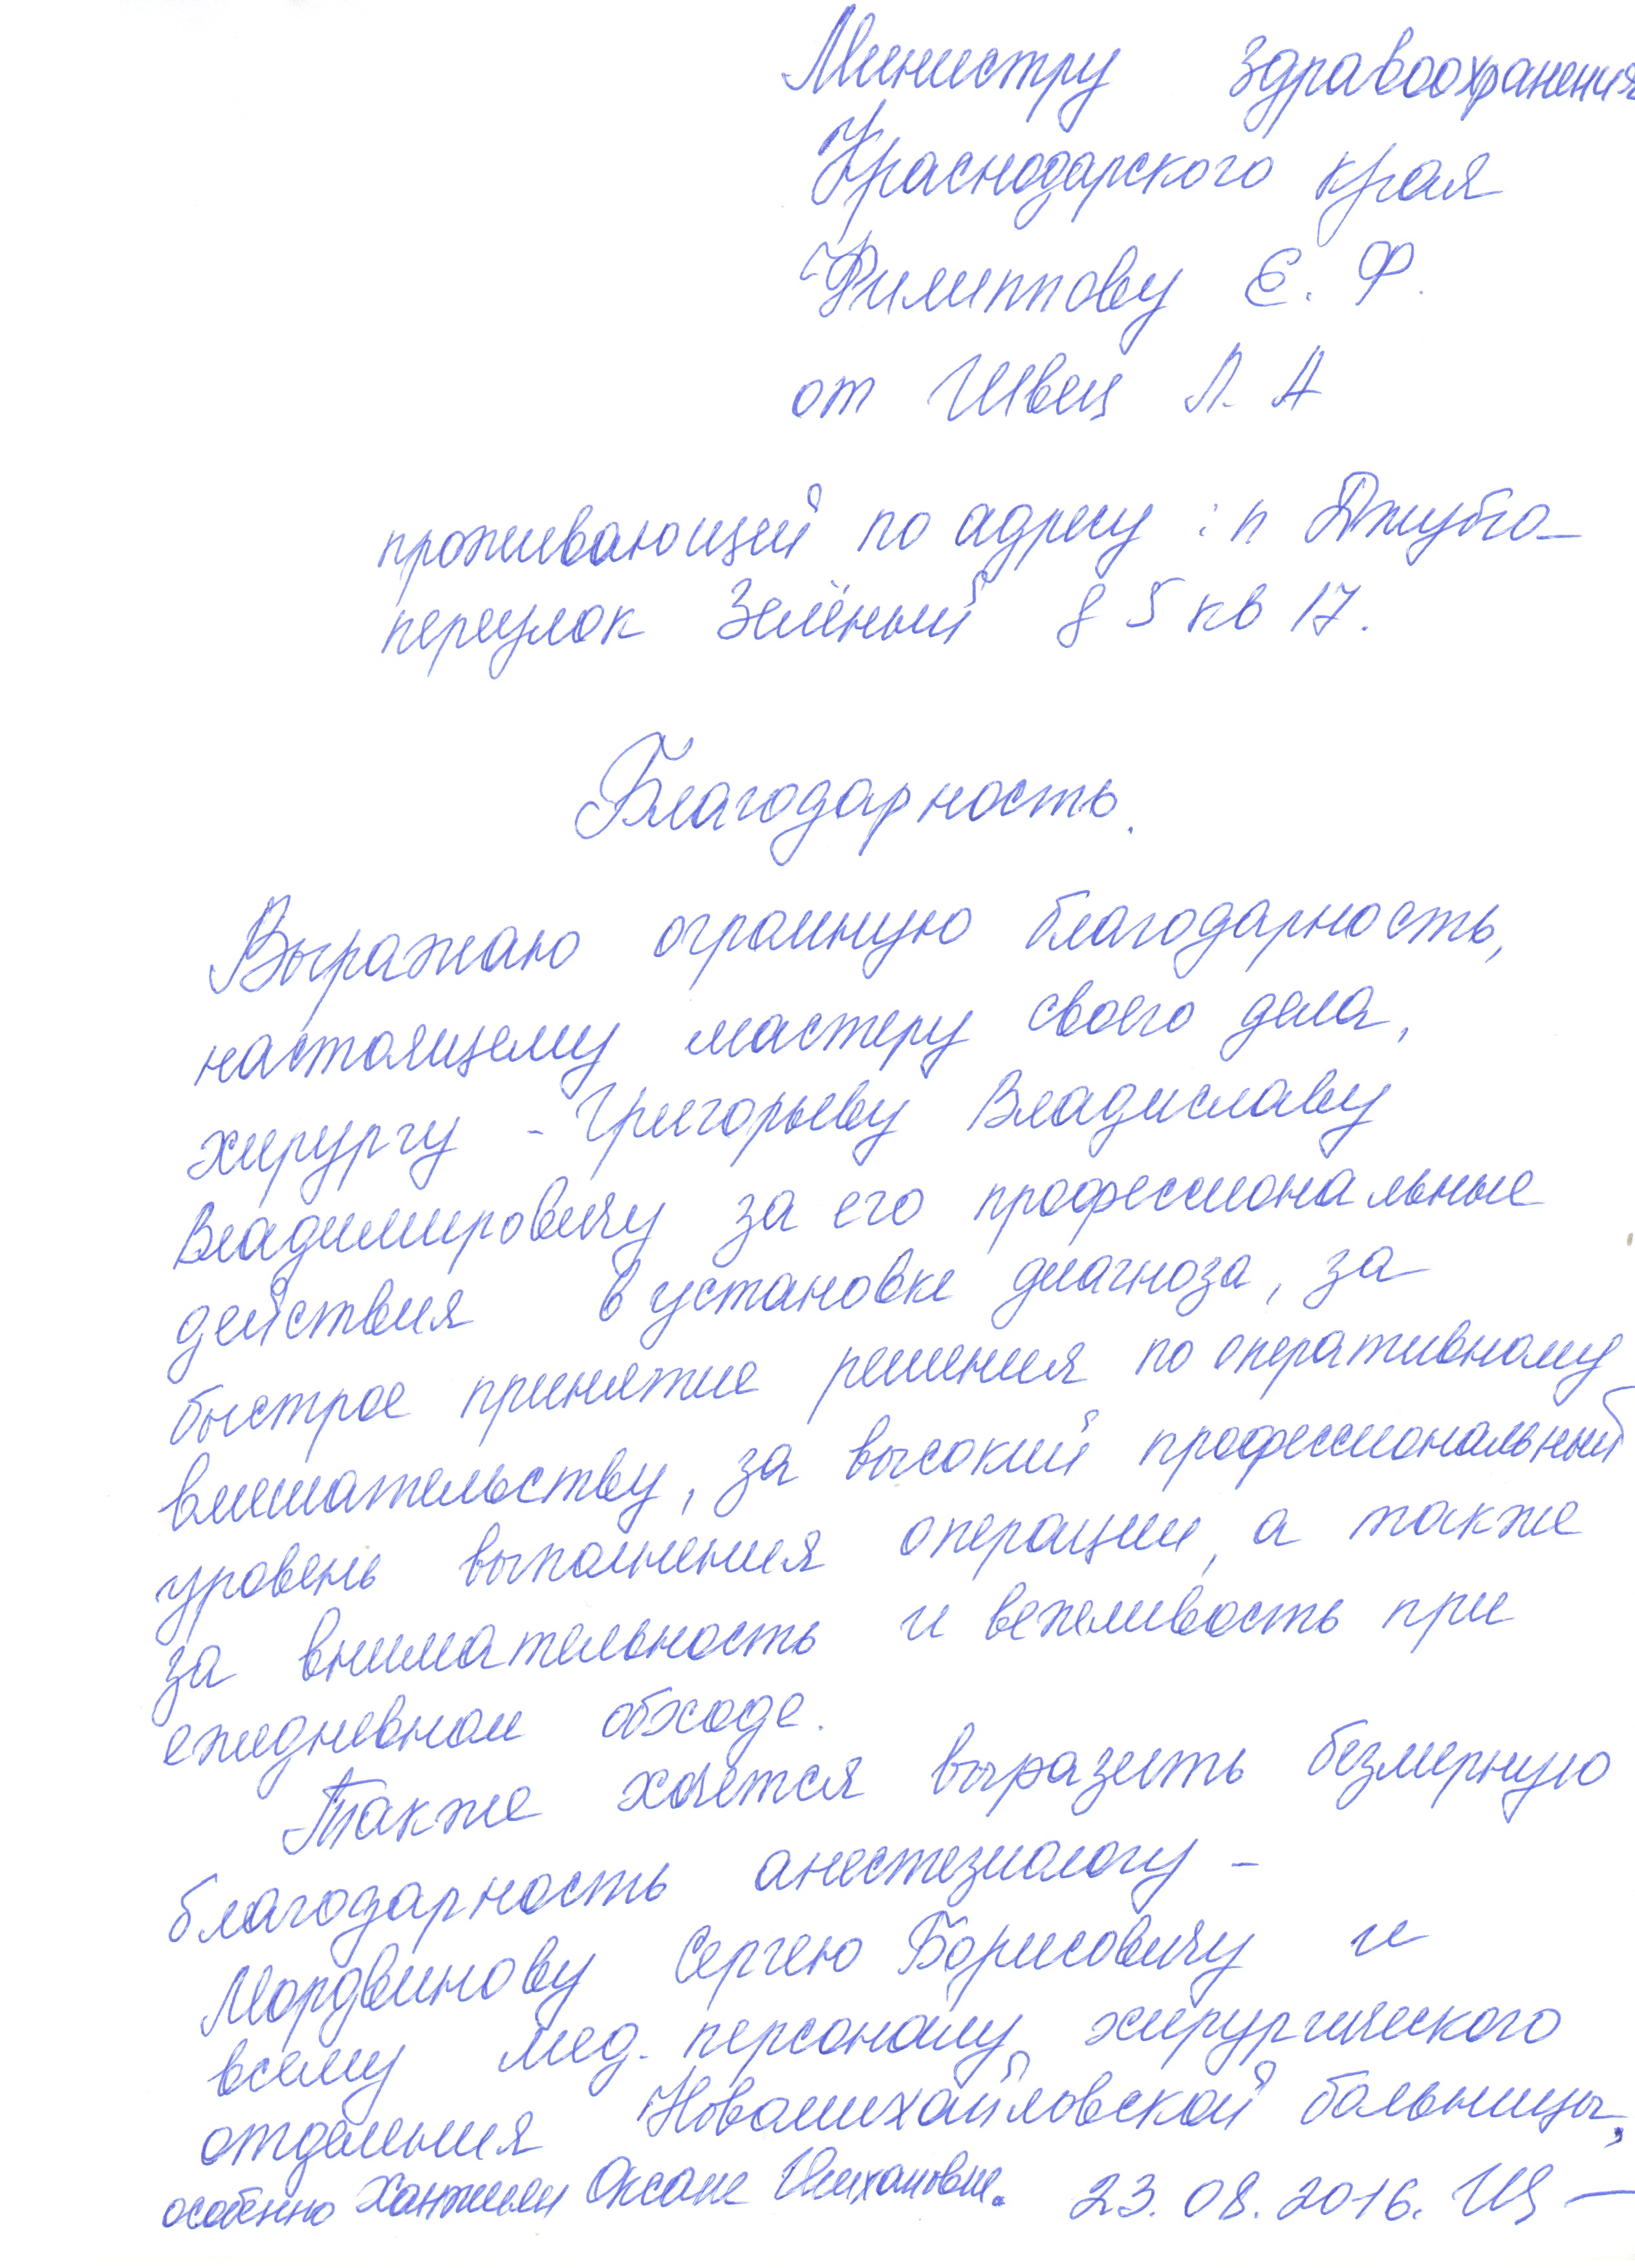 Министру здравоохранения
Краснодарского края
Филиппову Е. Ф.
от Швец Л. А
проживающей по адресу: п Джубга
переулок Зелёный д 5 кв 17.
Благодарность.
Выражаю огромную благодарность,
настоящему мастеру своего дела,
хирургу - Григорьеву Владиславу
Владимировичу за его профессиональные
действия в установке диагноза, за
быстрое принятие решения по оперативному
вмешательству, за высокий профессиональный
уровень выполнения операции, а также
за внимательность и вежливость при
ежедневном обходе.
Также хочется выразить безмерную
благодарность анестезиологу -
Мордвинову Сергею Борисовичу и
всему мед. персоналу хирургического
отделения Новомихайловской больницы,
особенно Оксане 23.08.2016.